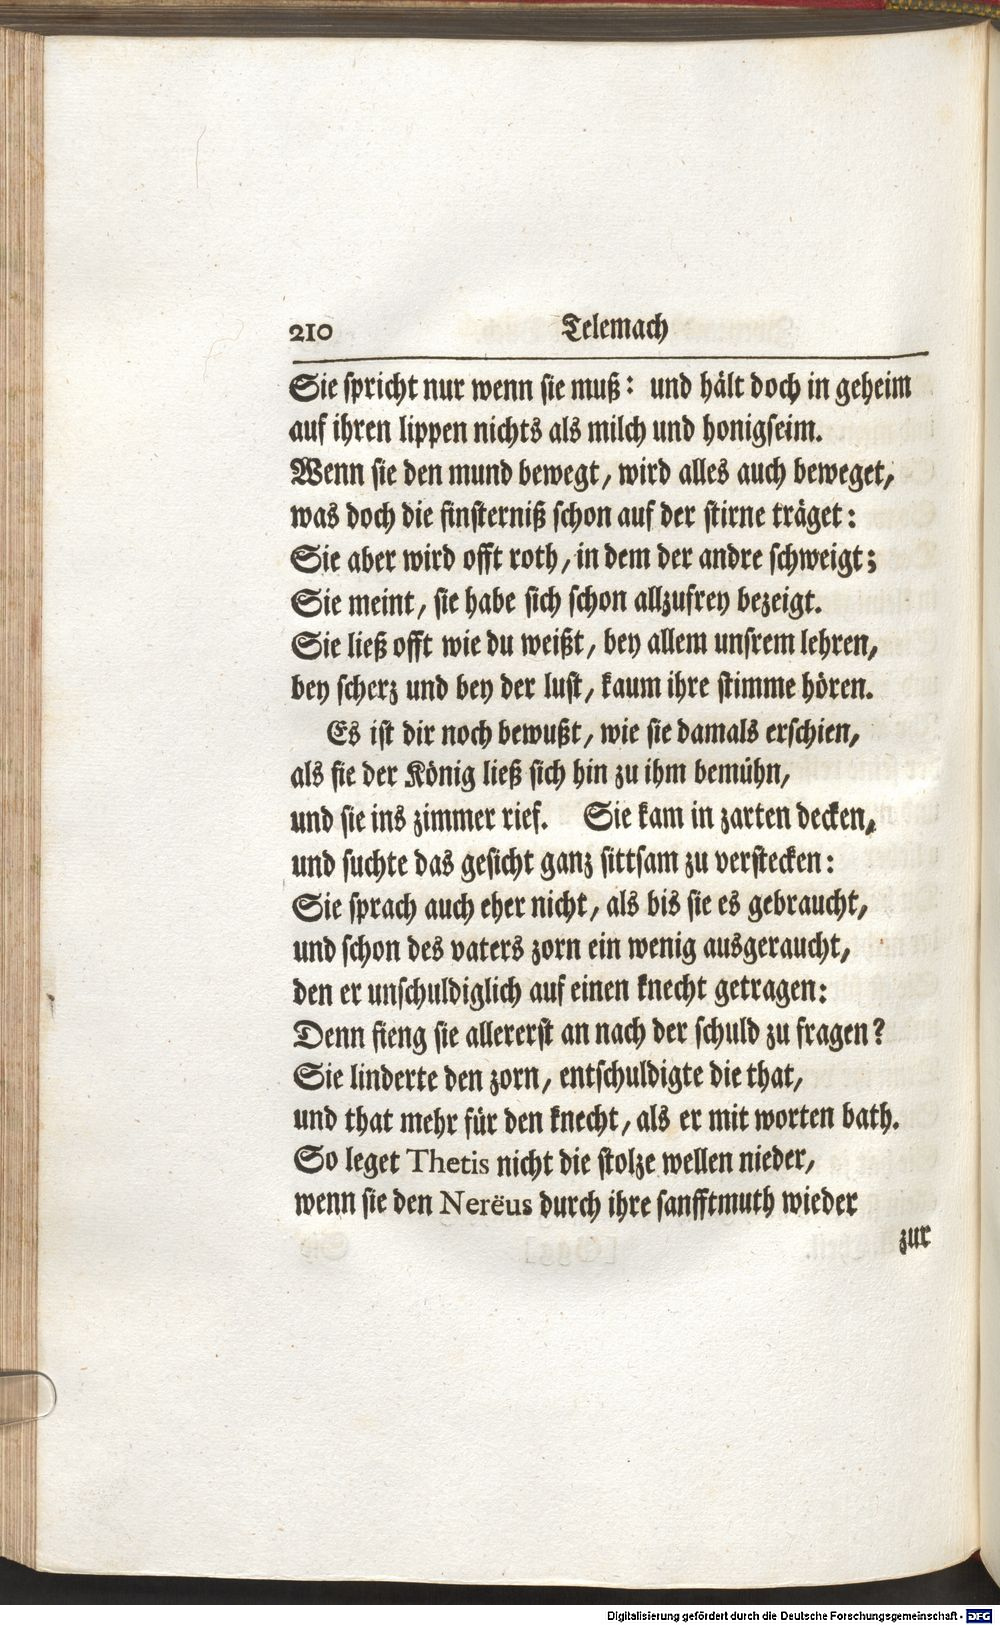 210 Telemach
Sie spricht nur wenn sie muß: und hält doch in geheim
auf ihren lippen nichts als milch und honigseim.
Wenn sie den mund bewegt, wird alles auch beweget,
was doch die finsterniß schon auf der stirne träget:
Sie aber wird offt roth, in dem der andre schweigt;
Sie meint, sie habe sich schon allzufrey bezeigt.
Sie ließ offt wie du weißt, bey allem unsrem lehren,
bey scherz und bey der lust, kaum ihre stimme hören.
Es ist dir noch bewußt, wie sie damals erschien,
als sie der König ließ sich hin zu ihm bemühn,
und sie ins zimmer rief. Sie kam in zarten decken,
und suchte das gesicht ganz sittsam zu verstecken:
Sie sprach auch eher nicht, als bis sie es gebraucht,
und schon des vaters zorn ein wenig ausgeraucht,
den er unschuldiglich auf einen knecht getragen:
Denn fieng sie allererst an nach der schuld zu fragen?
Sie linderte den zorn, entschuldigte die that,
und that mehr für den knecht, als er mit worten bath.
So leget Thetis nicht die stolze wellen nieder,
wenn sie den Nerëus durch ihre sanfftmuth wieder
zur
Digitalisierung gefördert durch die Deutsche Forschungsgemeinschaft - DFG